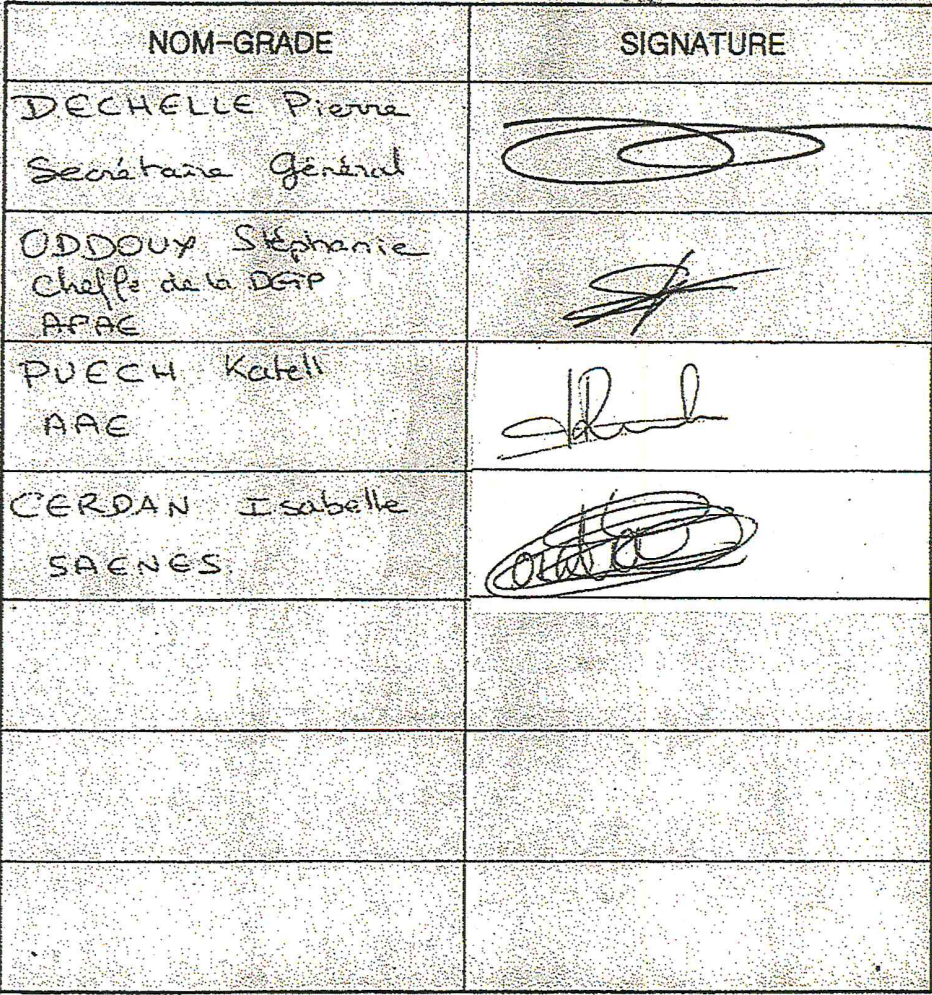 NOM-GRADE
SIGNATURE
DECHELLE Pierre
Secrétaire Général
ODDOUX Stéphanie
Cheffe de la DGP
APAE
PUECH Katell
AAE
CERDAN Isabelle
SAENES